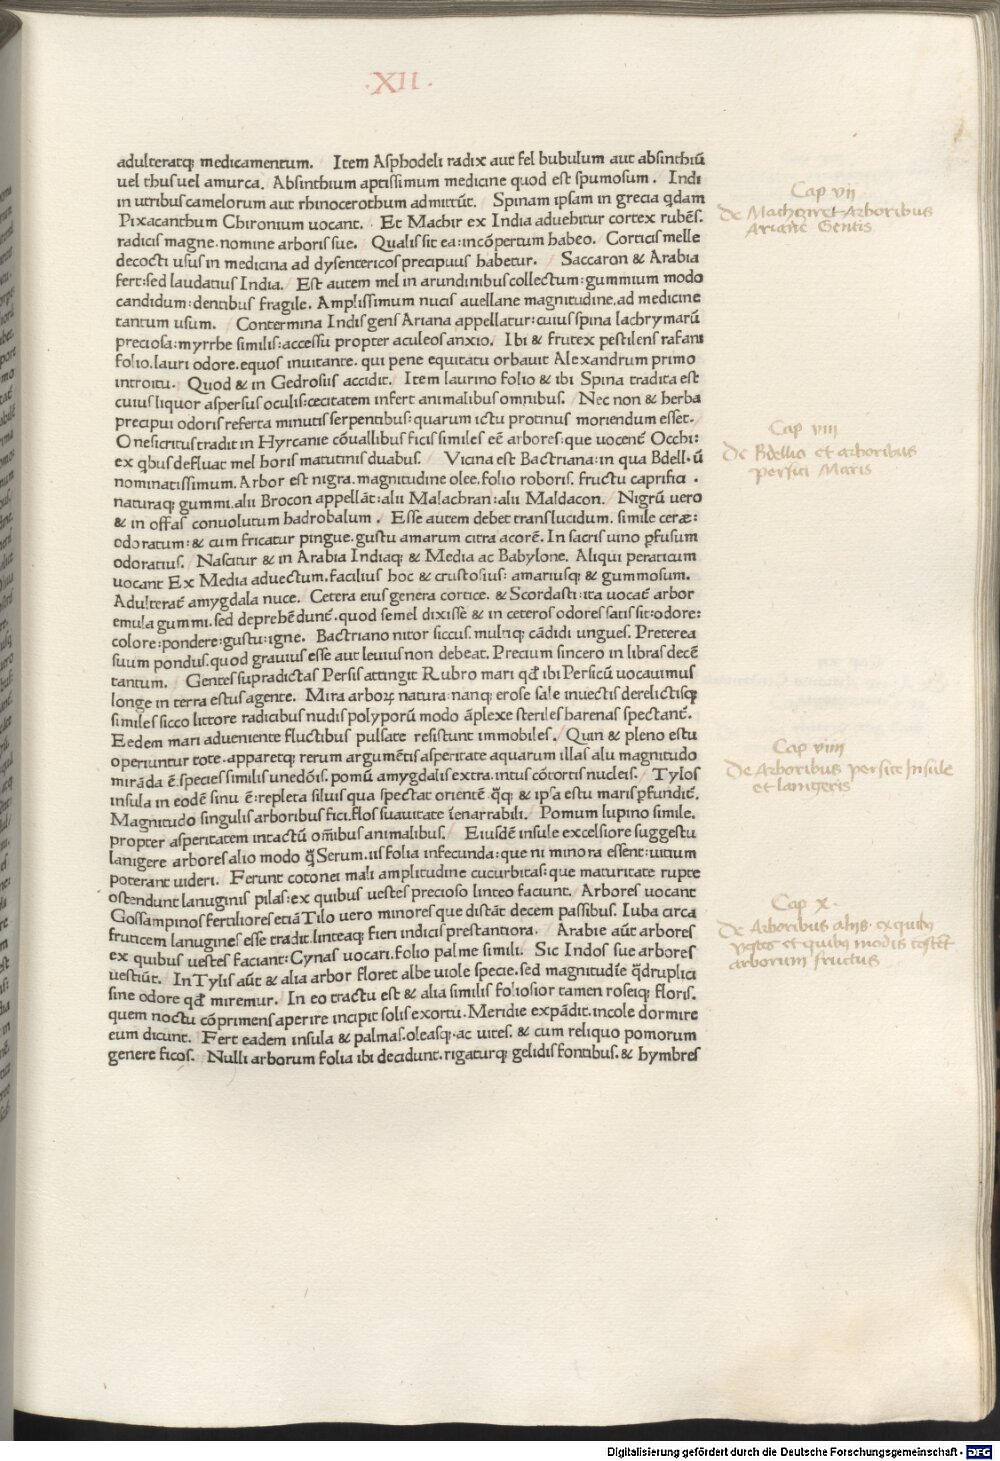 ·XII·
adulteratq; medicamentum. Item Asphodeli radix aut fel bubulum aut absinthiū
uel thus uel amurca. Absinthium aptissimum medicine quod est spumosum. Indi
in utribus camelorum aut rhinocerothum admittūt. Spinam ipsam in grecia qdam
Pixacanthum Chironium uocant. Et Machir ex India aduehitur cortex rubēs.
radicis magne. nomine arboris sue. Qualis sit ea: incōpertum habeo. Corticis melle
decocti usus in medicina ad dysentericos precipuus habetur. Saccaron & Arabia
fert: sed laudatius India. Est autem mel in arundinibus collectum: gummium modo
candidum: dentibus fragile. Amplissimum nucis auellane magnitudine. ad medicine
tantum usum. Contermina Indis gens Ariana appellatur: cuius spina lachrymarū
preciosa: myrrhe similis: accessu propter aculeos anxio. Ibi & frutex pestilens rafani
folio. lauri odore. equos inuitante. qui pene equitatu orbauit Alexandrum primo
introitu. Quod & in Gedrosiis accidit. Item laurino folio & ibi Spina tradita est
cuius liquor aspersus oculis: cecitatem infert animalibus omnibus. Nec non & herba
precipui odoris referta minutis serpentibus: quarum ictu protinus moriendum esset.
Onesicritus tradit in Hyrcanie cōuallibus ficis similes eē arbores: que uocent̄ Occhi:
ex qbus defluat mel horis matutinis duabus. Vicina est Bactriana: in qua Bdell·ū
nominatissimum. Arbor est nigra. magnitudine olee. folio roboris. fructu caprifici.
naturaq; gummi. alii Brocon appellāt: alii Malachran: alii Maldacon. Nigrū uero
& in offas conuolutum hadrobalum. Esse autem debet translucidum. simile ceræ:
odoratum: & cum fricatur pingue. gustu amarum citra acorē. In sacris uino ꝑfusum
odoratius. Nascitur & in Arabia Indiaq; & Media ac Babylone. Aliqui peraticum
uocant Ex Media aduectum. facilius hoc & crustosius: amariusq; & gummosum.
Adulterat̄ amygdala nuce. Cetera eius genera cortice. & Scordasti: ita uocat̄ arbor
emula gummi. sed deprehēdunt̄. quod semel dixisse & in ceteros odores satis sit: odore:
colore: pondere: gustu: igne. Bactriano nitor siccus. multiq; cādidi ungues. Preterea
suum pondus. quod grauius esse aut leuius non debeat. Precium sincero in libras decē
tantum. Gentes supradictas Persis attingit Rubro mari qđ ibi Persicū uocauimus
longe in terra estus agente. Mira arboꝝ natura: nanq; erose sale inuectis derelictisq;
similes sicco littore radicibus nudis polyporū modo āplexe steriles harenas spectant̄.
Eedem mari adueniente fluctibus pulsate resistunt immobiles. Quin & pleno estu
operiuntur tote. apparetq; rerum argumētis asperitate aquarum illas ali. magnitudo
mirāda ē. species similis unedōis. pomū amygdalis extra. intus cōtortis nucleis. Tylos
insula in eodē sinu ē: repleta siluis qua spectat orientē q̄q; & ipsa estu maris ꝑfundit̄.
Magnitudo singulis arboribus fici. flos suauitate īenarrabili. Pomum lupino simile.
propter asperitatem intactū oīnibus animalibus. Eiusdē insule excelsiore suggestu
lanigere arbores alio modo q̄ Serum. iis folia infecunda: que ni minora essent: uitium
poterant uideri. Ferunt cotonei mali amplitudine cucurbitas: que maturitate rupte
ostendunt lanuginis pilas: ex quibus uestes precioso linteo faciunt. Arbores uocant
Gossampinos fertiliores etiā Tilo uero minores que distāt decem passibus. Iuba circa
fruticem lanugines esse tradit. linteaq; fieri indicis prestantiora. Arabie aūt arbores
ex quibus uestes faciant: Cynas uocari. folio palme simili. Sic Indos sue arbores
uestiūt. In Tylis aūt & alia arbor floret albe uiole specie. sed magnitudīe q̄druplici
sine odore qđ miremur. In eo tractu est & alia similis foliosior tamen roseiq; floris.
quem noctu cōprimens aperire incipit solis exortu. Meridie expādit. incole dormire
eum dicunt. Fert eadem insula & palmas. oleasq;. ac uites. & cum reliquo pomorum
genere ficos. Nulli arborum folia ibi decidunt. rigaturq; gelidis fontibus. & hymbres
Cap vii
De Machor et Arboribus
Ariane Gentis
Cap viii
De Bdellio et arboribus
persici Maris
Cap viiii
De Arboribus persice Insule
et lanigeris
Cap X.
De Arboribus alijs. ex quibꝫ
vestes et quibꝫ modis
arborum fructus
Digitalisierung gefördert durch die Deutsche Forschungsgemeinschaft - DFG